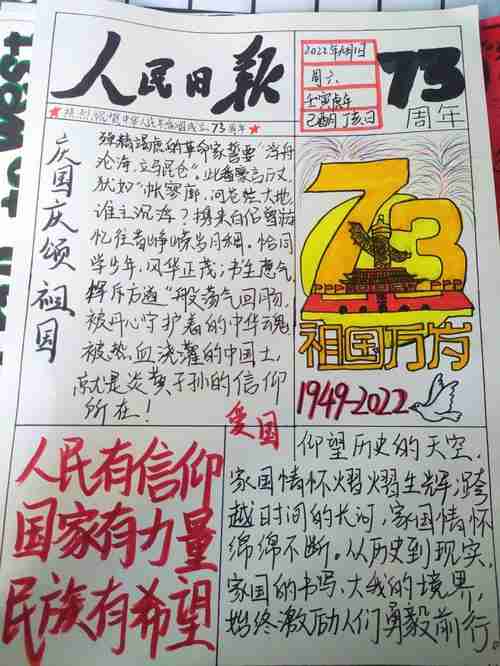 人民日报
2022年10月1日
周六
壬寅虎年
己酉月丁亥日
73
周年
★特刊:祝贺中华人民共和国成立73周年★
庆国庆颂祖国
殚精竭虑的革命家誓要“浮舟
沧海,立马昆仑”。此番豪言历史,
犹如“怅寥廓,问苍茫大地,
谁主沉浮?携来百侣曾游
忆往昔峥嵘岁月稠。恰同
学少年,风华正茂;书生意气,
挥斥方遒”般荡气回肠,
被丹心守护着的中华魂,
被热血浇灌的中国土,
就是炎黄子孙的信仰
所在!
爱国
73
祖国万岁
1949-2022
人民有信仰
国家有力量
民族有希望
仰望历史的天空,
家国情怀熠熠生辉;跨
越时间的长河,家国情怀
绵绵不断。从历史到现实,
家国的书写、大我的境界,
始终激励人们勇毅前行。